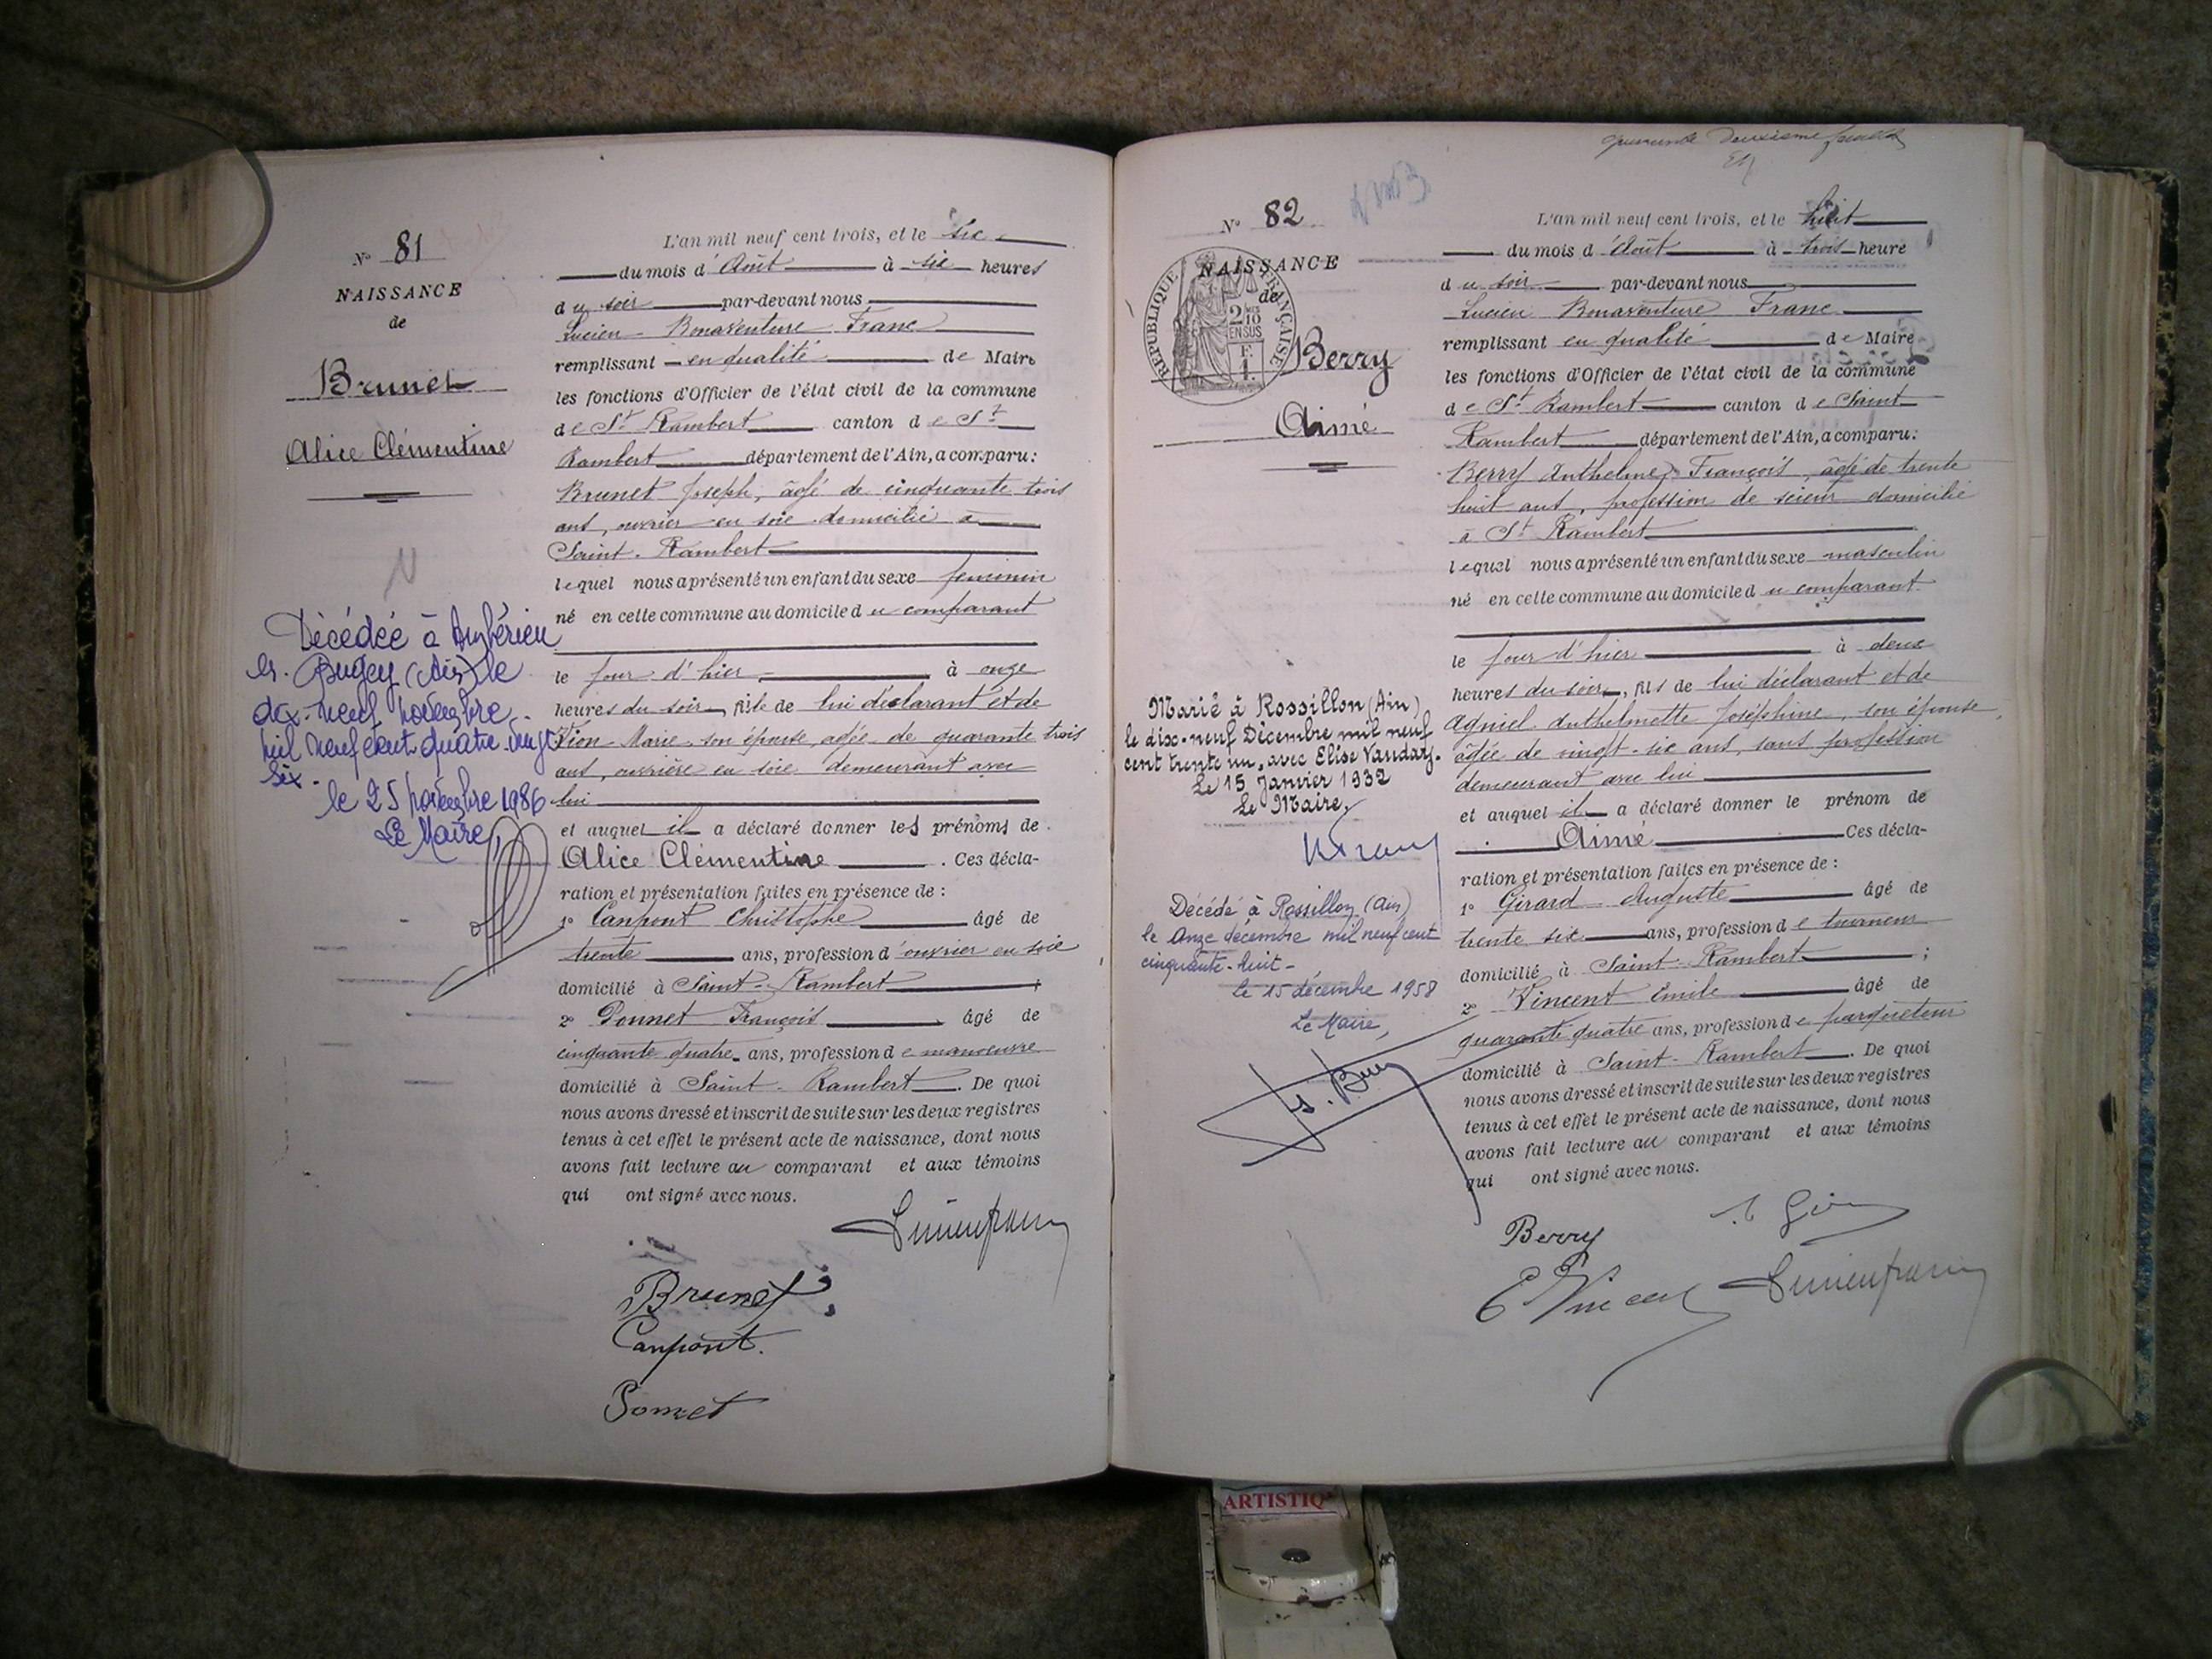 N° 81
NAISSANCE
de
Brunet
Alice Clémentine
Décédée à Ambérieu
en Bugey (Ain) le
dix-neuf novembre
mil neuf cent quatre-vingt
six.
le 25 novembre 1986
Le Maire,
L'an mil neuf cent trois, et le six
du mois d'Août à six heures
du soir par-devant nous
Lucien Bonaventure Franc
remplissant en qualité de Maire
les fonctions d'Officier de l'état civil de la commune
de St Rambert canton de St
Rambert département de l'Ain, a comparu:
Brunet Joseph, âgé de cinquante trois
ans, ouvrier en soie domicilié à
Saint-Rambert
lequel nous a présenté un enfant du sexe feminin
né en cette commune au domicile du comparant
le jour d'hier à onze
heures du soir, fille de lui déclarant et de
Vion Marie son épouse, agée de quarante trois
ans, ouvrière en soie demeurant avec
lui
et auquel il a déclaré donner les prénoms de
Alice Clémentine . Ces décla-
ration et présentation faites en présence de :
1° Canpont Christophe âgé de
trente ans, profession d'ouvrier en soie
domicilié à Saint-Rambert ;
2° Ponnet François âgé de
cinquante quatre ans, profession de manoeuvre
domicilié à Saint-Rambert . De quoi
nous avons dressé et inscrit de suite sur les deux registres
tenus à cet effet le présent acte de naissance, dont nous
avons fait lecture au comparant et aux témoins
qui ont signé avec nous.
Lucien franc
Brunet
Canpont.
Ponnet
quarante deuxième feuillet
N° 82
NAISSANCE
de
RÉPUBLIQUE FRANÇAISE
2/10 EN SUS
Berry
Aimé
Marié à Rossillon (Ain)
le dix-neuf Décembre mil neuf
cent trente un, avec Elise Vauday.
Le 15 Janvier 1932
Le Maire,
Décédé à Rossillon (Ain)
le onze décembre mil neuf cent
cinquante-huit-
Le 15 décembre 1958
Le Maire,
L'an mil neuf cent trois, et le huit
du mois d'Août à trois heure
du soir par-devant nous
Lucien Bonaventure Franc
remplissant en qualité de Maire
les fonctions d'Officier de l'état civil de la commune
de St Rambert canton de Saint
Rambert département de l'Ain, a comparu:
Berry Anthelme François, âgé de trente
huit ans, profession de scieur domicilié
à St Rambert
lequel nous a présenté un enfant du sexe masculin
né en cette commune au domicile du comparant
le jour d'hier à deux
heures du soir, fils de lui déclarant et de
Agniel Anthelmette Joséphine, son épouse,
âgée de vingt-six ans, sans profession
demeurant avec lui
et auquel il a déclaré donner le prénom de
Aimé Ces décla-
ration et présentation faites en présence de :
1° Girard Auguste âgé de
trente six ans, profession de tourneur
domicilié à Saint-Rambert ;
2° Vincent Emile âgé de
quarante quatre ans, profession de parqueteur
domicilié à Saint-Rambert . De quoi
nous avons dressé et inscrit de suite sur les deux registres
tenus à cet effet le présent acte de naissance, dont nous
avons fait lecture au comparant et aux témoins
qui ont signé avec nous.
Berry
E Vincent Lucien franc
ARTISTIQ